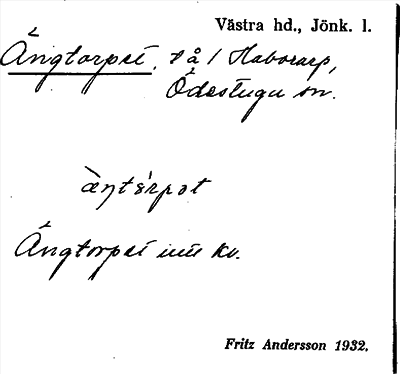 Västra hd., Jönk. l.
Ängtorpet, t å 1 Haborarp,
Ödestugu sn.
Ängtorpet kv.
Fritz Andersson 1932.